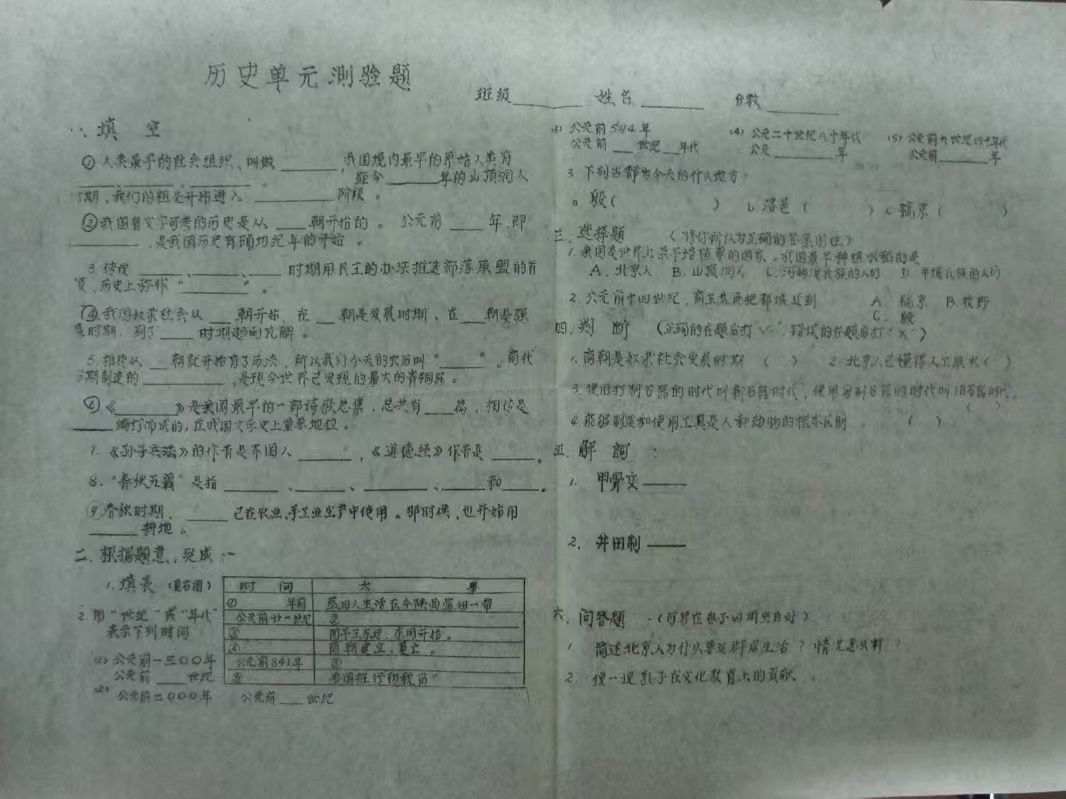 历史单元测验题
班级______ 姓名______ 分数______
一、填 空
①人类最早的社会组织、叫做______,我国境内最早的原始人类有
______、______。 距今______年的山顶洞人
时期,我们的祖先开始进入______阶段。
②我国有文字可考的历史是从____朝开始的。公元前____年,即
______,是我国历史有确切纪年的开始。
3.传说______、______、____时期用民主的办法推选部落联盟的首
领,历史上称作"______"。
④.我国奴隶社会从__朝开始,在__朝是发展时期,在__朝是强
盛时期,到了____时期趋向瓦解。
5.相传从__朝就开始有了历法,所以我们今天的农历叫"____"。商代
后期制造的______,是现今世界已发现的最大的青铜器。
⑥《______》是我国最早的一部诗歌总集,总共有___篇,相传是
____编订而成的,在我国文学史上重要地位。
7.《孙子兵法》的作者是齐国人____,《道德经》作者是____。
8."春秋五霸"是指____、____、____、____和____。
⑨春秋时期,____已在农业、手工业生产中使用。那时候,也开始用
____耕地。
二、根据题意,完成:
1.填表(见右图)
时 间 大 事
① 年前 蓝田人生活在今陕西蓝田一带
公元前廿一世纪 ②
③ 周平王东迁,东周开始。
④ 商朝建立,夏亡。
公元前841年 ⑤
⑥ 鲁国推行初税亩"
2.用"世纪"或"年代"
表示下列时间
(1)公元前一三〇〇年
公元前___世纪
(2)公元前二〇〇〇年 公元前___世纪
(3)公元前594年
公元前___世纪__年代
(4)公元二十世纪八十年代
公元______年
(5)公元前九世纪四十年代
公元前______年
3.下列古都为今天的什么地方?
a.殷( ) b.洛邑( ) c.镐京( )
三、选择题 (将你所认为正确的答案圈住)
1.我国是世界上最早植稻的国家。我国最早种植水稻的是
A.北京人 B.山顶洞人 C.河姆渡氏族的人们 D.半坡氏族的人们
2.公元前十四世纪,商王盘庚把都城迁到 A.镐京 B.牧野
C.殷
四、判 断 (正确的在题后打"√",错误的在题后打"×")
1.商朝是奴隶社会发展时期 ( ) 2.北京人已懂得人工取火( )
3.使用打制石器的时代叫新石器时代,使用磨制石器的时代叫旧石器时代。
( )
4.能够制造和使用工具是人和动物的根本区别 ( )
五、解 词:
1.甲骨文——
2.井田制——
六.问答题 (可写在卷子的周央白处)
1.简述北京人为什么要过群居生活?情况怎么样?
2.说一说孔子在文化教育上的贡献。